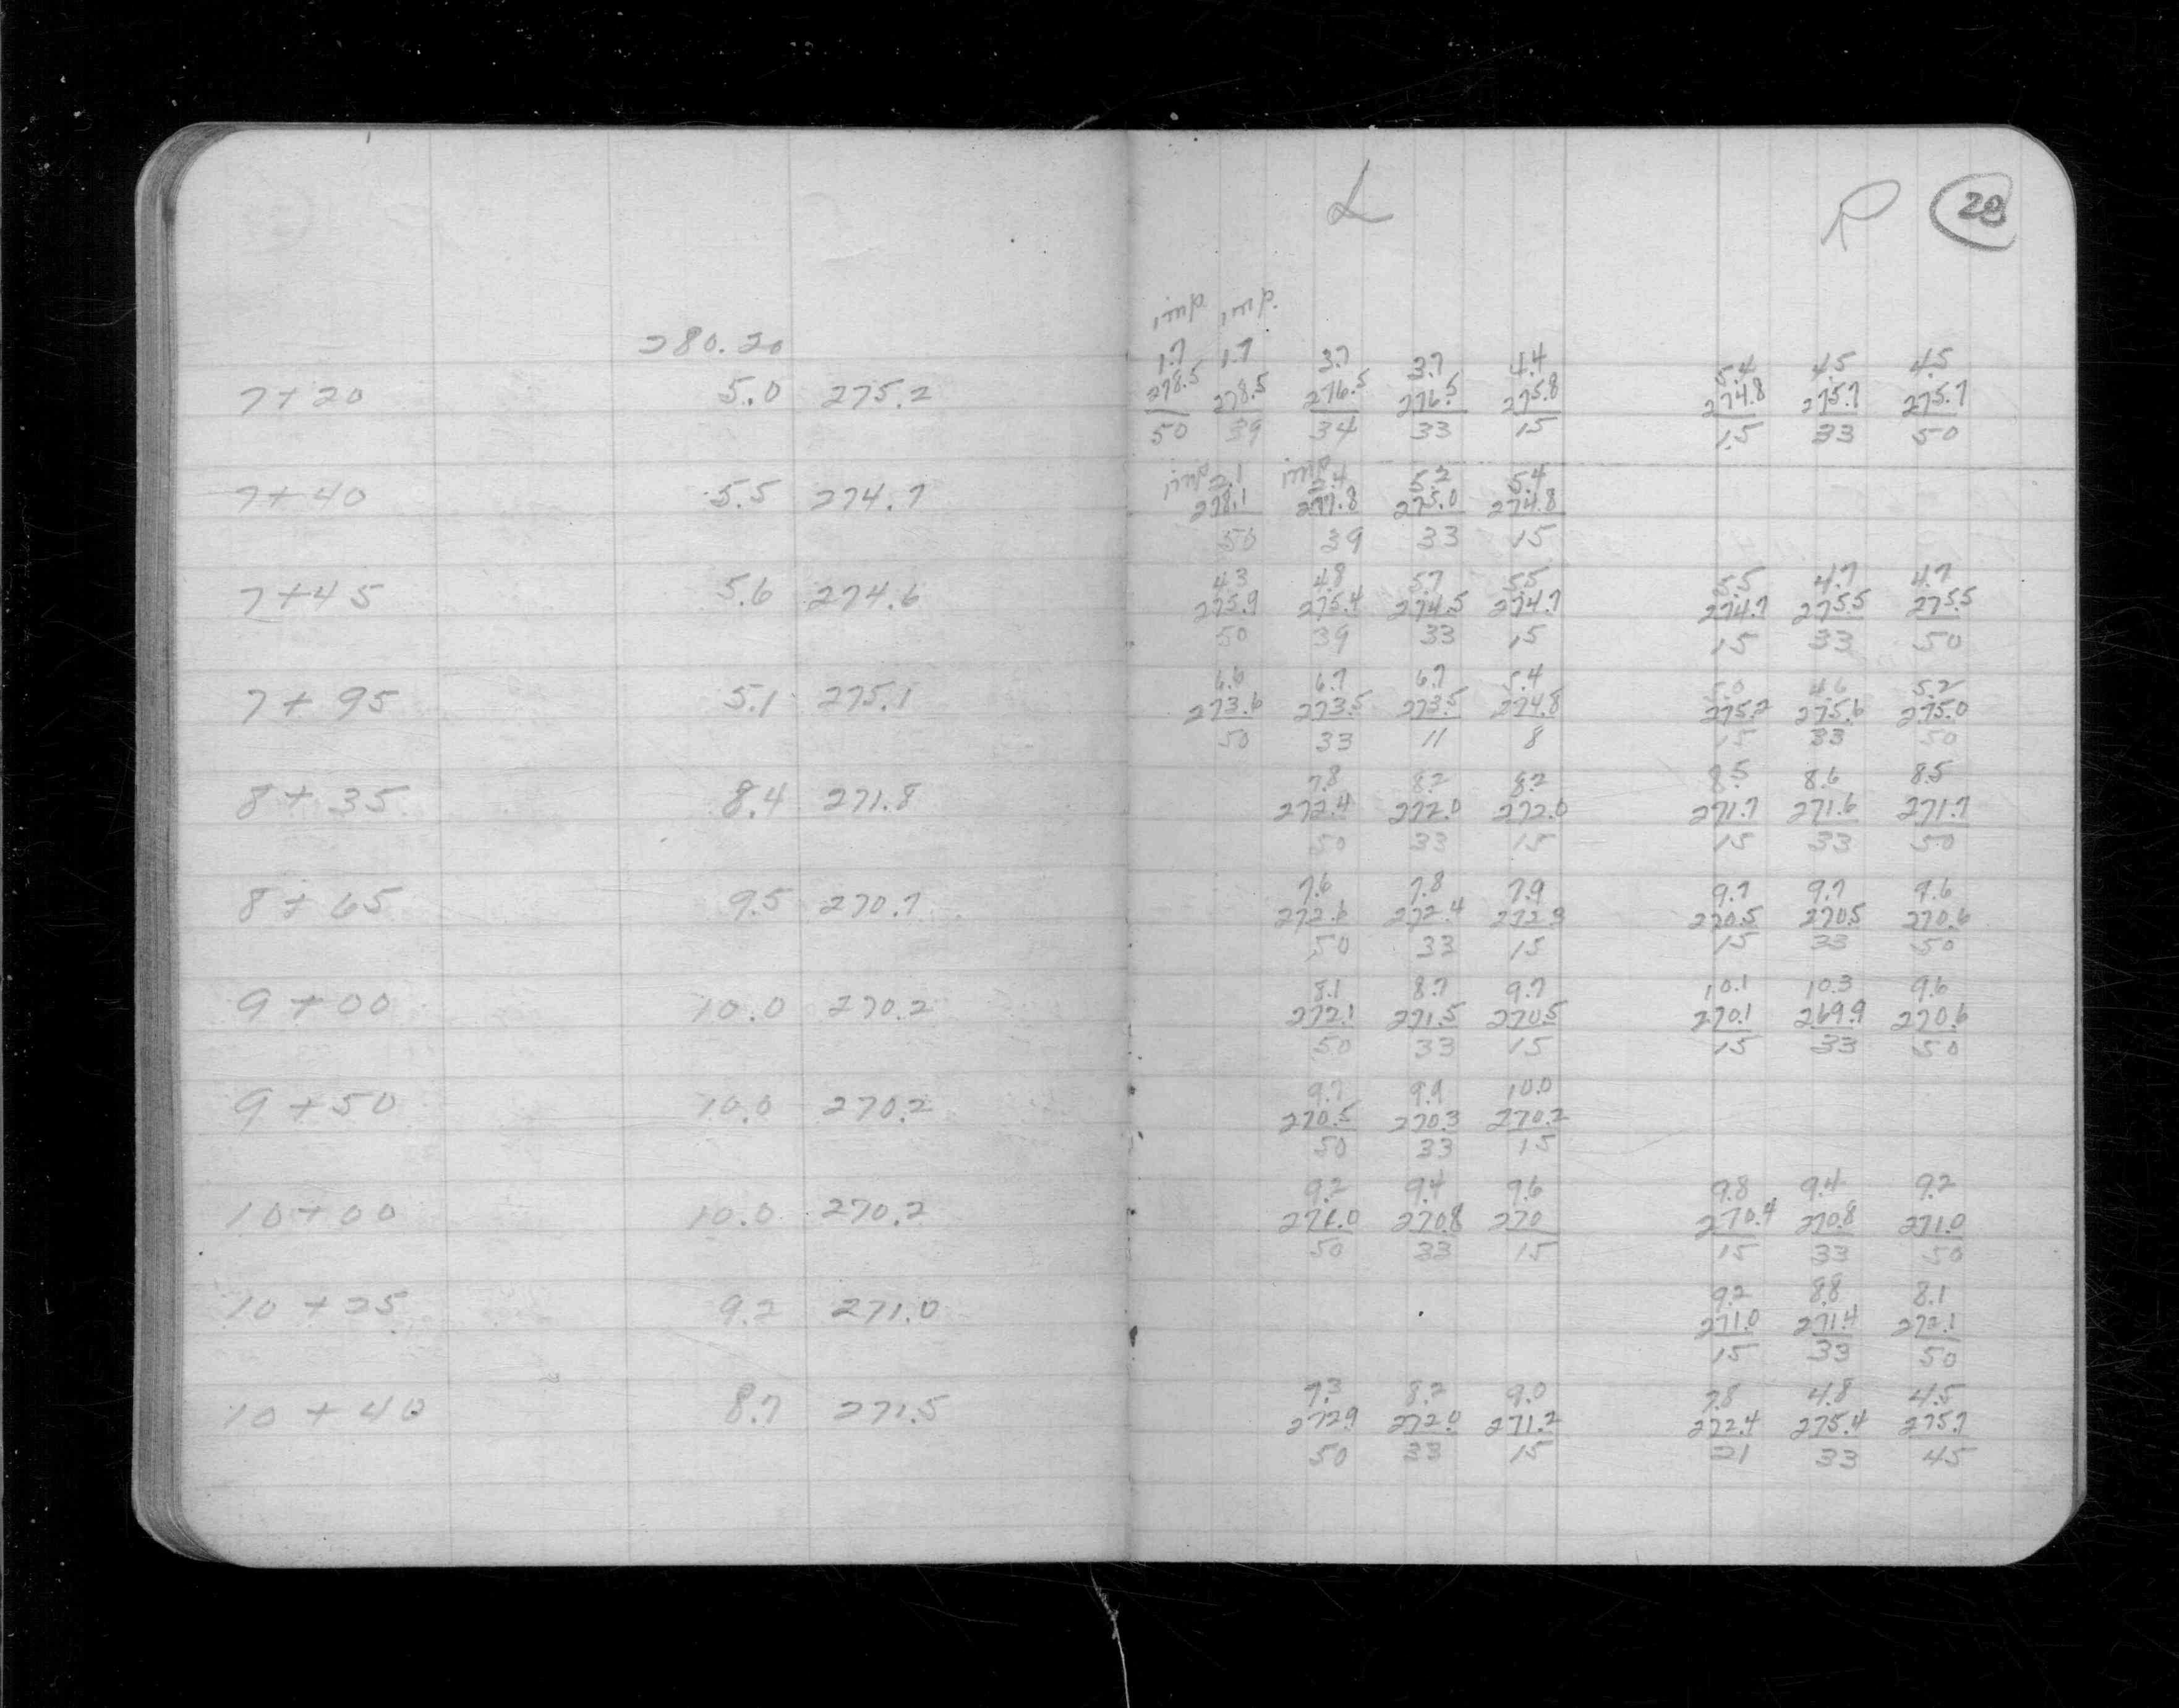 L R 28
imp imp.
280.20
1.7 1.7 3.7 3.7 4.4 5.4 4.5 4.5
7+20 5.0 275.2 278.5 278.5 276.5 276.5 275.8 274.8 275.7 275.7
50 39 34 33 15 15 33 50
imp 2.1 imp 2.4 5.2 5.4
7+40 5.5 274.7 278.1 277.8 275.0 274.8
50 39 33 15
4.3 4.8 5.7 5.5 5.5 4.7 4.7
7+45 5.6 274.6 275.9 275.4 274.5 274.7 274.7 275.5 275.5
50 39 33 15 15 33 50
6.6 6.7 6.7 5.4 5.0 4.6 5.2
7+95 5.1 275.1 273.6 273.5 273.5 274.8 275.2 275.6 275.0
50 33 11 8 15 33 50
7.8 8.2 8.2 8.5 8.6 8.5
8+35 8.4 271.8 272.4 272.0 272.0 271.7 271.6 271.7
50 33 15 15 33 50
7.6 7.8 7.9 9.7 9.7 9.6
8+65 9.5 270.7 272.6 272.4 272.3 270.5 270.5 270.6
50 33 15 15 33 50
8.1 8.7 9.7 10.1 10.3 9.6
9+00 10.0 270.2 272.1 271.5 270.5 270.1 269.9 270.6
50 33 15 15 33 50
9.7 9.9 10.0
9+50 10.0 270.2 270.5 270.3 270.2
50 33 15
9.2 9.4 9.6 9.8 9.4 9.2
10+00 10.0 270.2 271.0 270.8 270 270.4 270.8 271.0
50 33 15 15 33 50
9.2 8.8 8.1
10+25 9.2 271.0 271.0 271.4 272.1
15 33 50
7.3 8.2 9.0 7.8 4.8 4.5
10+40 8.7 271.5 272.9 272.0 271.2 272.4 275.4 275.7
50 33 15 21 33 45